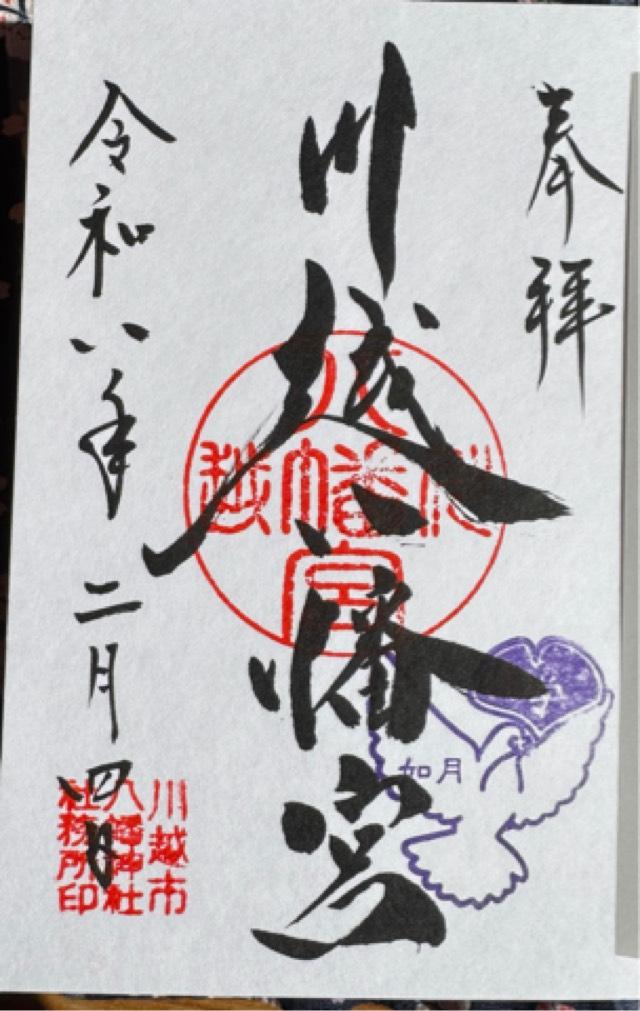 奉拝
川越八幡宮
川越八幡宮
如月
令和八年二月四日
川越市
八幡神社
社務所印